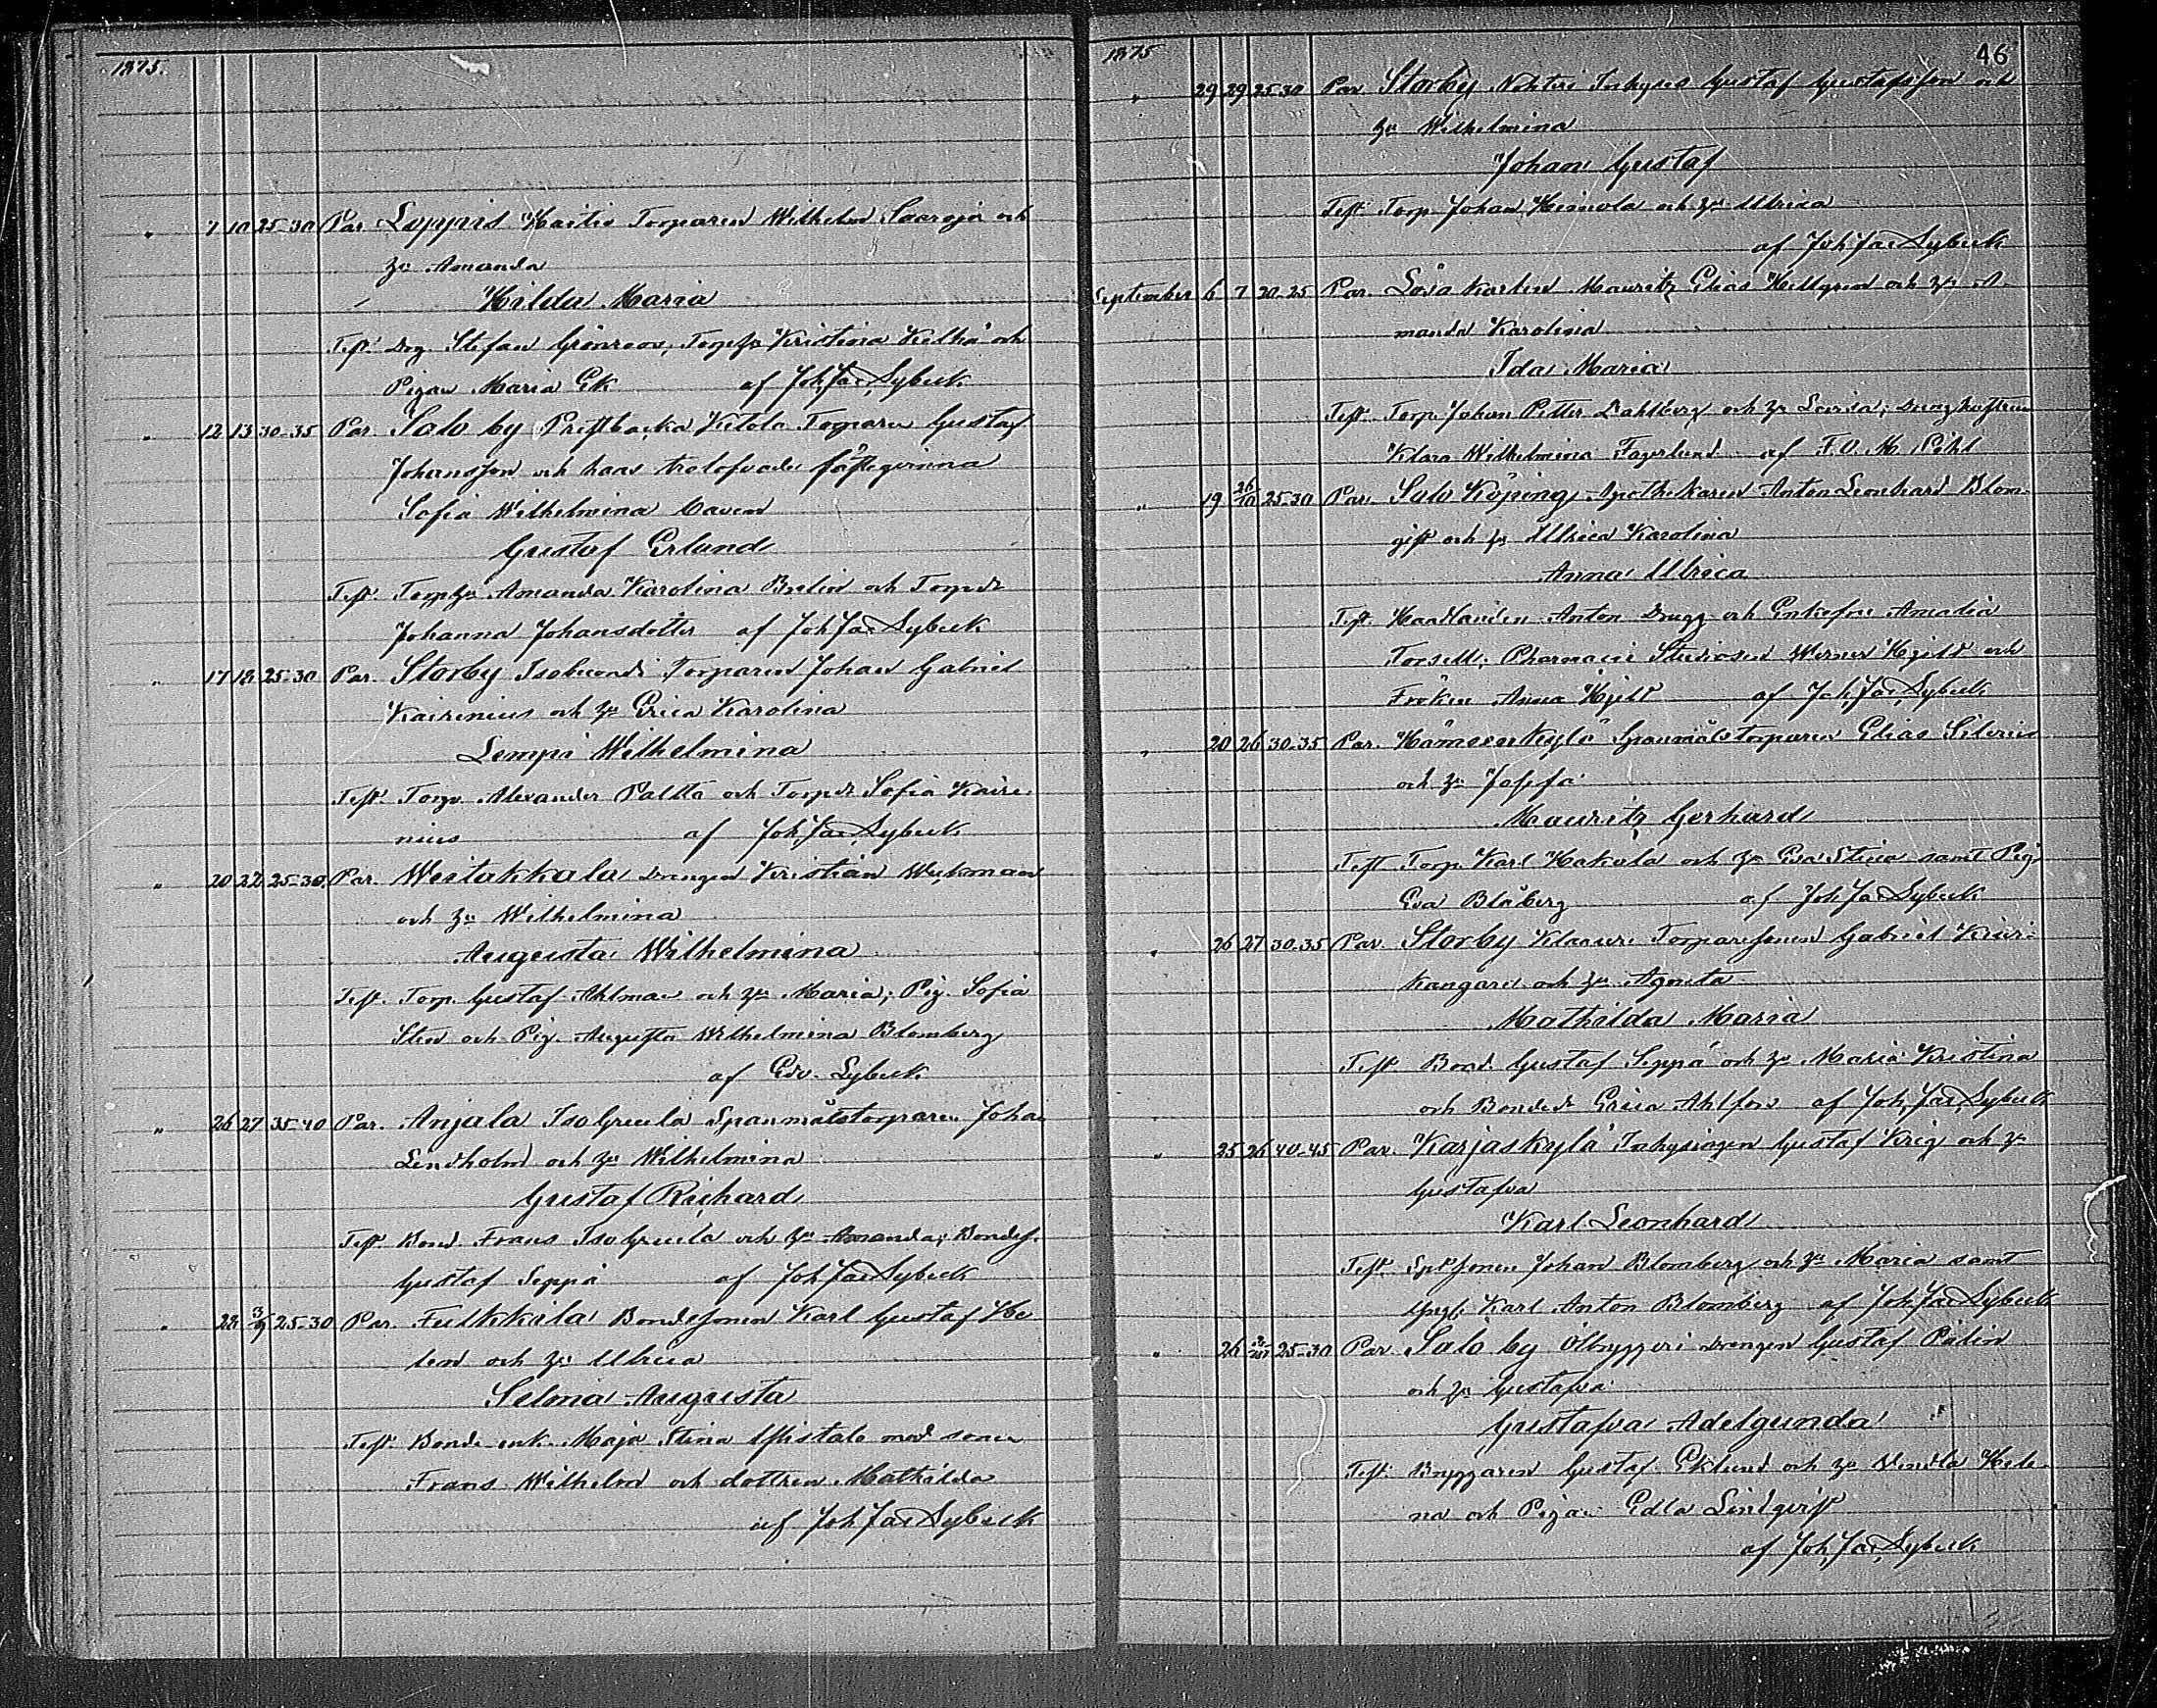 1875.
" 7 10 25-30 Par. Loppis Kaitio Torparen Wilhelm Saaroja och
hu Amanda
Hilda Maria
Test. Drg. Stefan Grönroos, Torphu Kristina Kelhä och
Pigan Maria Ek af Joh. Jac. Sybeck
" 12 13 30-35 Par. Salo by Prestbacka Ketola Torparen Gustaf
Johansson och hans trolofvade fästeqvinna
Sofia Wilhelmina Caven
Gustaf Erland
Test. Torphu Amanda Karolina Brelin och Torpdr
Johanna Johansdotter af Joh. Jac. Sybeck
" 17 18 25-30 Par. Storby Torparen Johan Gabriel
Kairenius och hu Erica Karolina
Lempi Wilhelmina
Test. Torp. Alexander Paltta och Torpdr Sofia Kaire-
nius af Joh. Jac. Sybeck
" 20 22 25-30 Par. Weitakkala Drengen Kristian Wickman
och hu Wilhelmina
Augusta Wilhelmina
Test. Torp. Gustaf Ahlman och hu Maria; Pig. Sofia
Sten och Pig. Augusta Wilhelmina Blomberg
af Edv. Sybeck
" 26 27 35-40 Par. Anjala IsoGreela Spanmålstorparen Johan
Lindholm och hu Wilhelmina
Gustaf Richard
Test. Bond. Frans IsoGreela och hu Amanda; Bondes.
Gustaf Seppä af Joh. Jac. Sybeck
" 28 3/9 25-30 Par. Fulkkila Bondesonen Karl Gustaf He-
len och hu Ulrica
Selma Augusta
Test. Bonde enk. Maja Stina Ylistalo med sonen
Frans Wilhelm och dottren Mathilda
af Joh. Jac. Sybeck
1875 46
" 29 29 25-30 Par. Storby Inhyses Gustaf Gustafsson och
hu Wilhelmina
Johan Gustaf
Test. Torp. Johan Heinola och hu Ulrica
af Joh. Jac. Sybeck
September 6 7 20-25 Par. Lösa karlen Mauritz Elias Hellgren och hu A-
manda Karolina
Ida Maria
Test. Torp. Johan Petter Dahlberg och hu Lovisa; Drenghustrun
Klara Wilhelmina Fagerlund af F. O. M. Pihl
" 19 26/10 25-30 Par. Salo Köping Apothekaren Anton Leonhard Blom-
qist och hu Ulrica Karolina
Anna Ulrica
Test. Handlanden Anton Drugg och Enkefru Amalia
Forsell; Pharmacie Studiosen Werner Hjelt och
Fröken Anna Hjelt af Joh. Jac. Sybeck
" 20 26 30-35 Par. Hämeenkylä Spanmålstorparen Elias Silenius
och hu Josefa
Mauritz Gerhard
Test. Torp. Karl Hakala och hu Eva Stina samt Pig.
Eva Blåberg af Joh. Jac. Sybeck
" 26 27 30-35 Par. Storby Torparesonen Gabriel Kuiri-
kangare och hu Agneta
Mathilda Maria
Test. Bond. Gustaf Seppä och hu Maria Kristina
och Bondedr Erica Ahlfors af Joh. Jac. Sybeck
" 25 26 40-45 Par. Karjaskylä Inhysingen Gustaf Krig och hu
Gustafva
Karl Leonhard
Test. Johan Blomberg och hu Maria samt
Karl Anton Blomberg af Joh. Jac. Sybeck
" 26 25-30 Par. Salo by Ölbryggeri Drengen Gustaf Palin
och hu Gustafva
Gustafva Adelgunda
Test. Bryggaren Gustaf Eklund och hu Wendla Hele-
na och Pigan Edla Lindqvist
af Joh. Jac. Sybeck